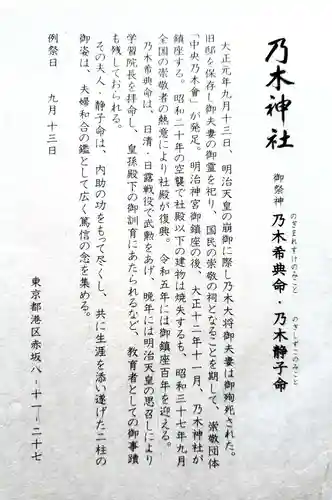 乃木神社
御祭神 乃木希典命・乃木静子命
のぎまれすけのみこと のぎしずこのみこと
大正元年九月十三日、明治天皇の崩御に際し乃木大将御夫妻は御殉死された。
旧邸を保存し御夫妻の御霊を祀り、国民の崇敬の祠となることを期して、崇敬団体
「中央乃木會」が発足。明治神宮御鎮座の後、大正十二年十一月、乃木神社が
鎮座する。昭和二十年の空襲で社殿以下の建物は焼失するも、昭和三十七年九月
全国の崇敬者の熱意により社殿が復興。令和五年には御鎮座百年を迎える。
乃木希典命は、日清・日露戦役で武勲をあげ、晩年には明治天皇の思召しにより
学習院長を拝命し、皇孫殿下の御訓育にあたられるなど、教育者としての御事蹟
も残しておられる。
その夫人・静子命は、内助の功をもって尽くし、共に生涯を添い遂げた二柱の
御姿は、夫婦和合の鑑として広く篤信の念を集める。
例祭日 九月十三日
東京都港区赤坂八ー十一ー二十七